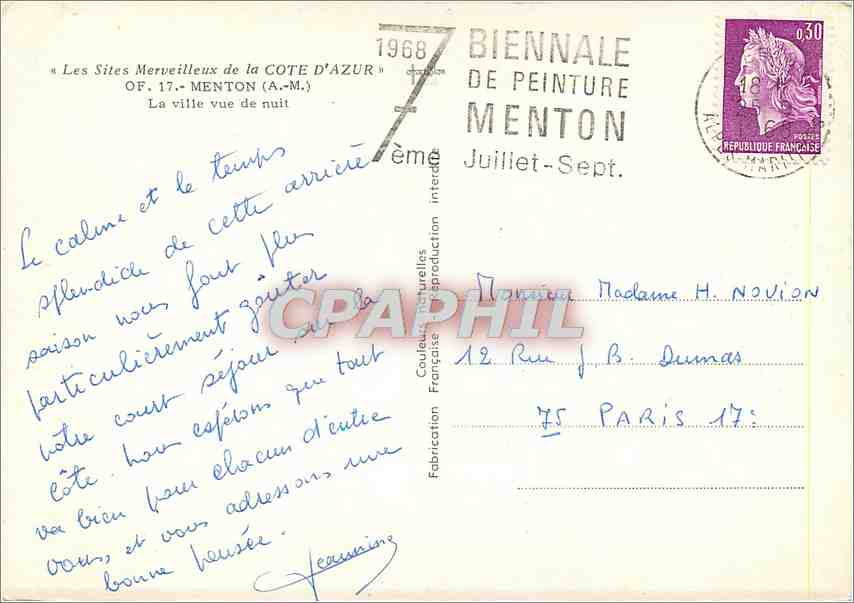 « Les Sites Merveilleux de la COTE D'AZUR »
OF. 17.- MENTON (A.-M.)
La ville vue de nuit
1968
7ème
BIENNALE
DE PEINTURE
MENTON
Juillet-Sept.
0,30
POSTES
REPUBLIQUE FRANÇAISE
18
Le calme et le temps
splendide de cette arrière
saison nous font plus
particulièrement goûter
notre court séjour sur la
côte. Nous espérons que tout
va bien pour chacun d'entre
vous, et vous adressons une
bonne pensée.
Jeannine
Couleurs naturelles
Fabrication Française - Reproduction interdite
CPAPHIL
Monsieur Madame H. NOVION
12 Rue J. B. Dumas
75 PARIS 17: